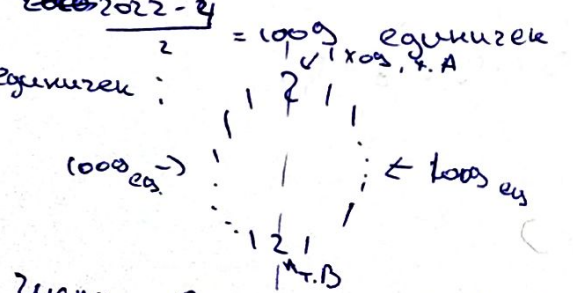 2022-4
2
= 1009 единичек
1 ход, т. А
единичек :
1 2 1
1 1
1009 ед. →
← 1009 ед
1 2 1
т. В